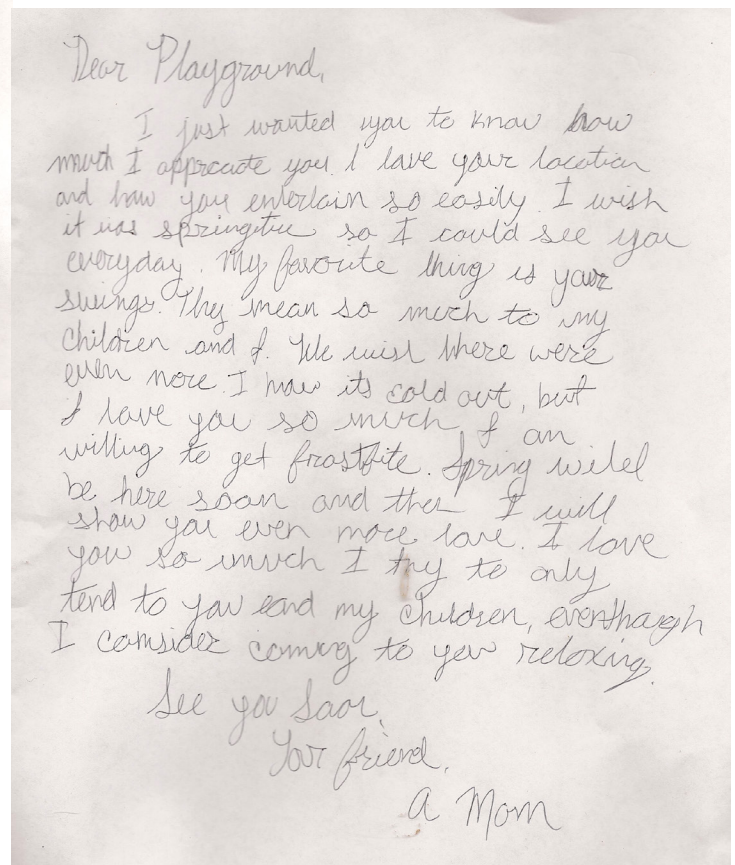 Dear Playground,
I just wanted you to know how
much I apprecate you. I love your location
and how you entertain so easily. I wish
it was springtime so I could see you
everyday. My favorite thing is your
swings. They mean so much to my
children and I. We wish there were
even more. I know its cold out, but
I love you so much, I am
willing to get frostbite. Spring will
be here soon and then I will
show you even more love. I love
you so much I try to only
tend to you and my children, eventhough
I comsider coming to you relaxing.
See you Soon,
Your friend,
A Mom